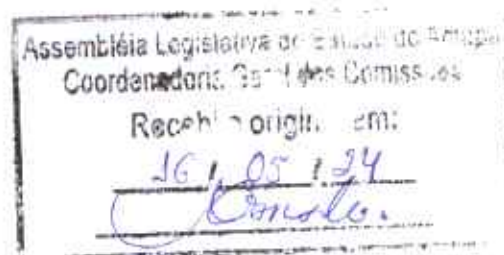 Assembléia Legislativa do Estado do Amapá
Coordenadoria Geral das Comissões
Recebi o origin. em:
16 / 05 / 24